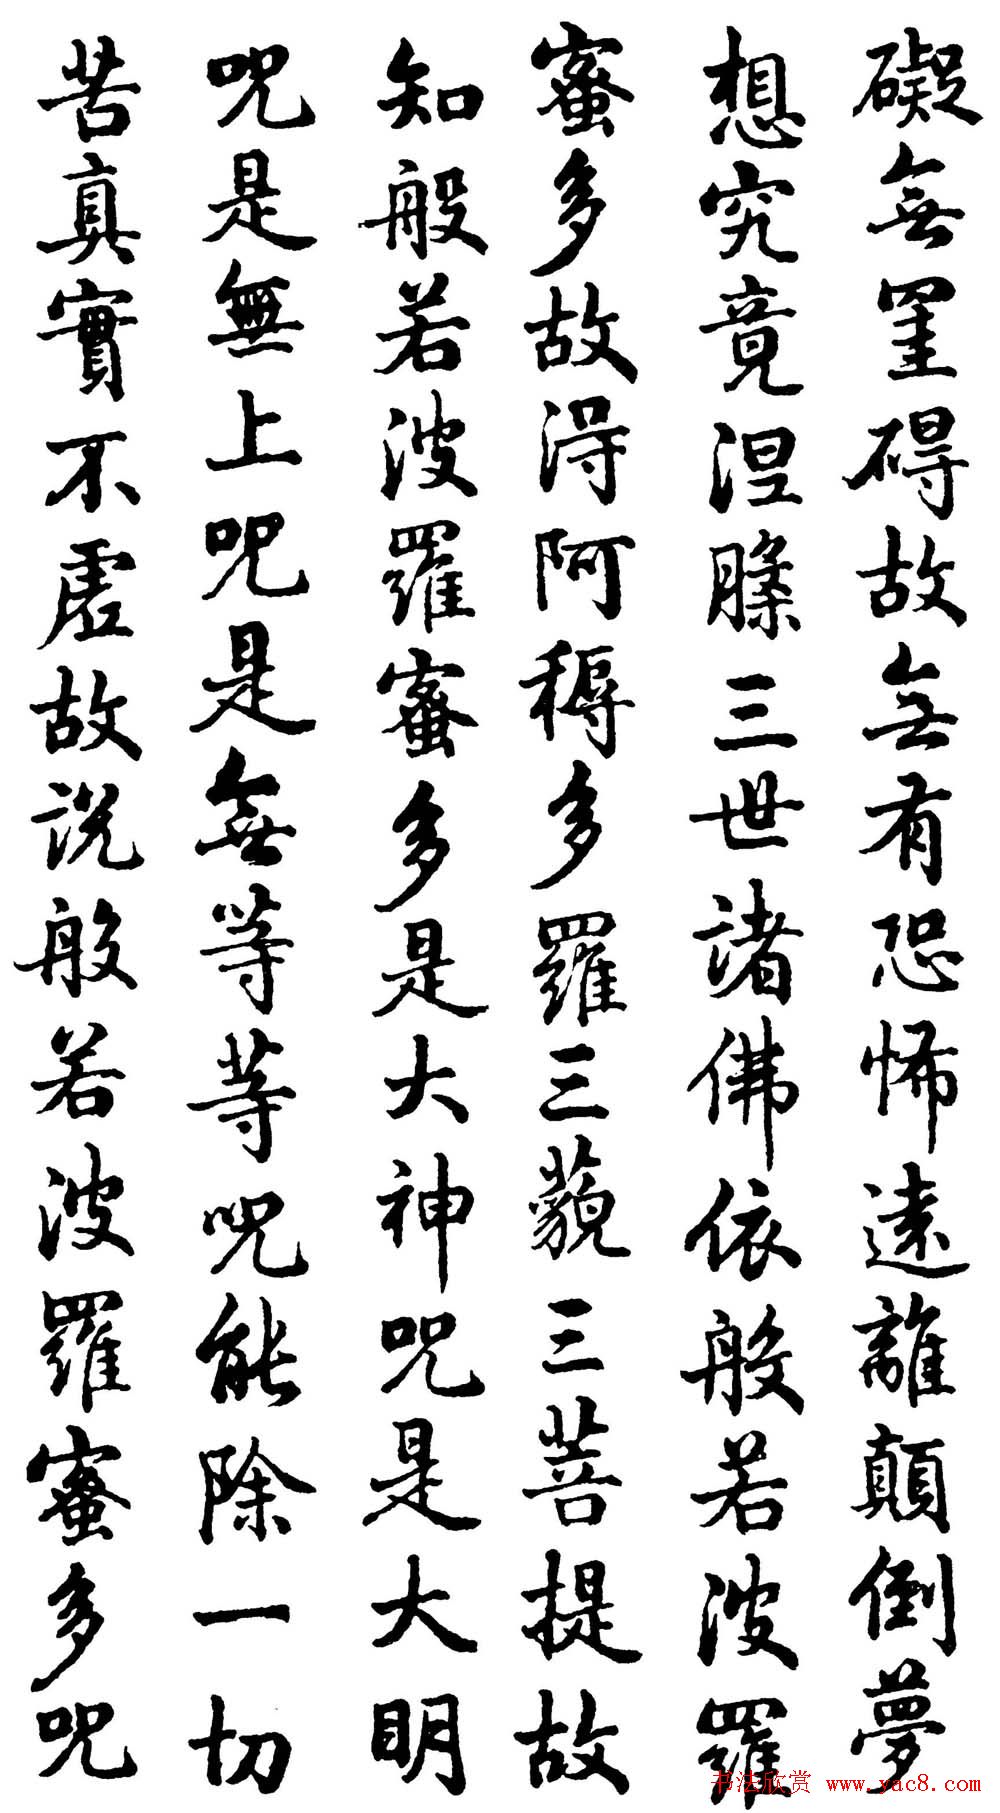 礙無罣碍故無有恐怖遠離顛倒夢
想究竟涅槃三世諸佛依般若波羅
蜜多故得阿耨多羅三藐三菩提故
知般若波羅蜜多是大神咒是大明
咒是無上咒是無等等咒能除一切
苦真實不虛故說般若波羅蜜多咒
书法欣赏 www.yac8.com